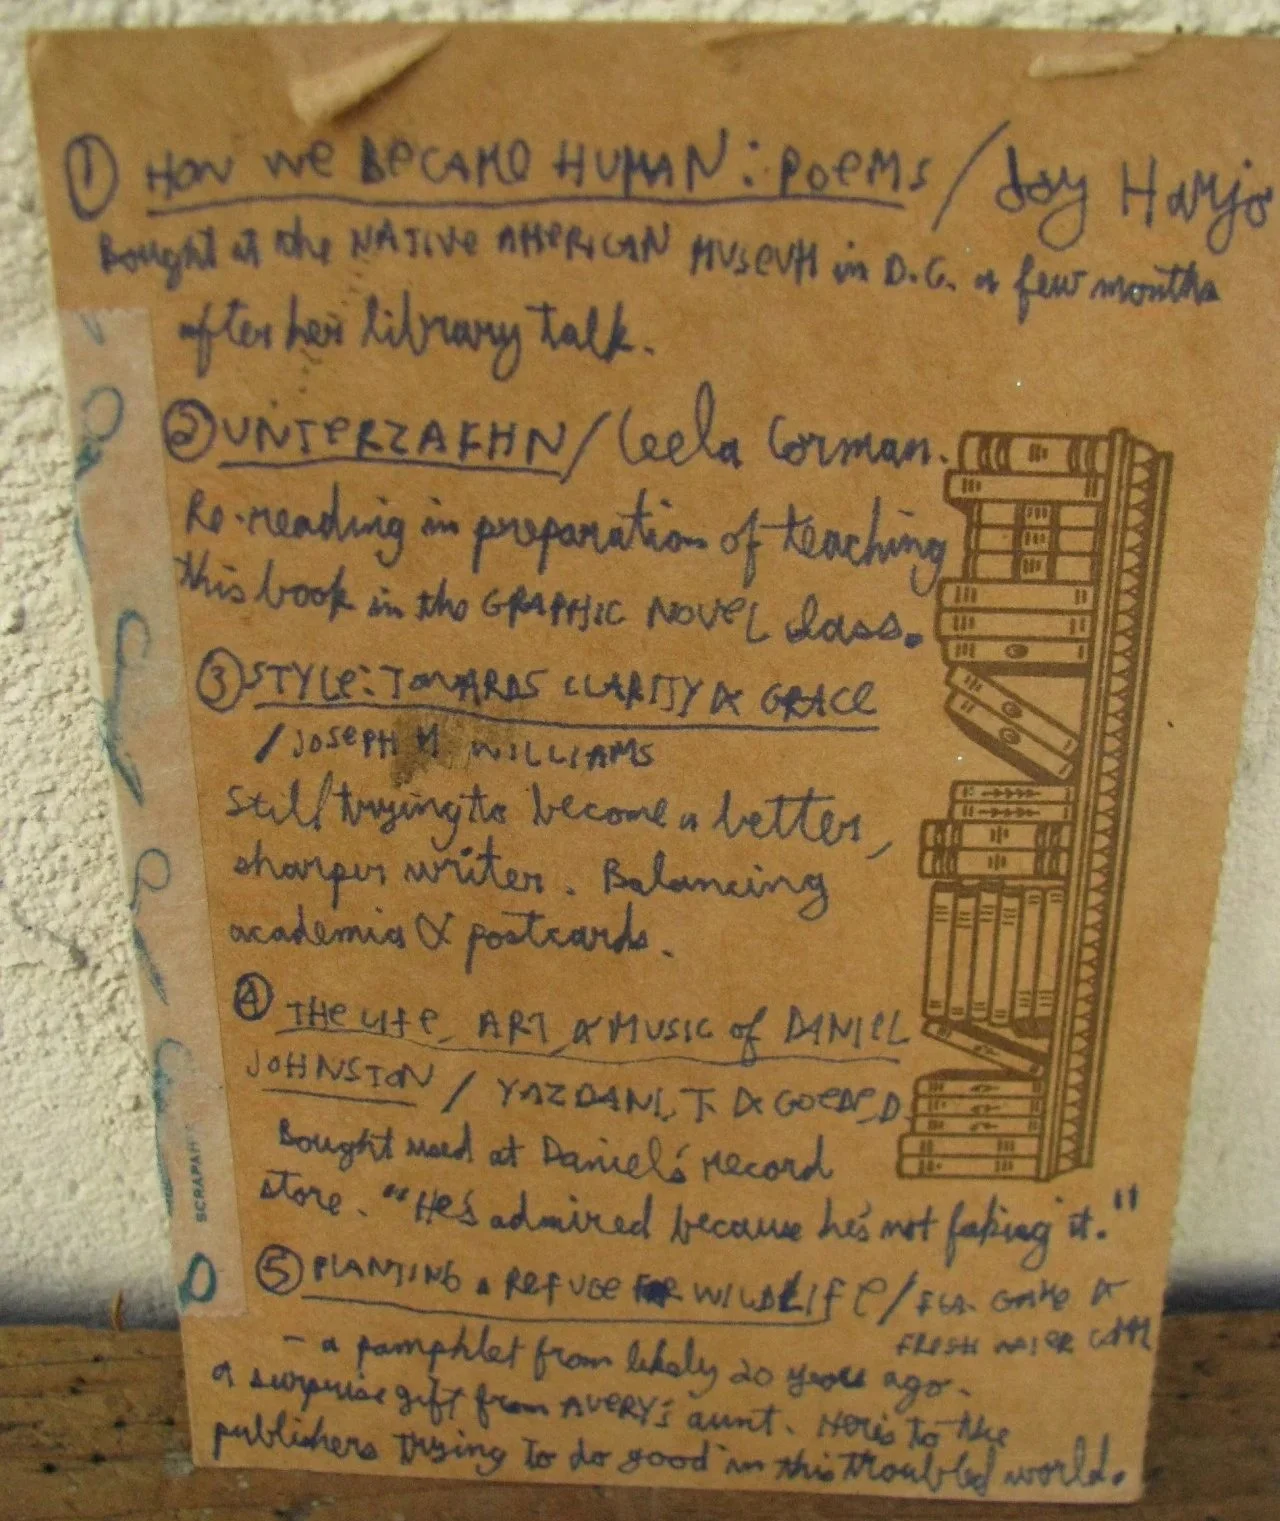 ① HOW WE BECAME HUMAN: POEMS / Joy Harjo
Bought at the NATIVE AMERICAN MUSEUM in D.C. a few months
after her library talk.
② UNTERZAKHN / Leela Corman.
Re-reading in preparation of teaching
this book in the GRAPHIC NOVEL class.
③ STYLE: TOWARDS CLARITY & GRACE
/ JOSEPH M WILLIAMS
Still trying to become a better,
sharper writer. Balancing
academia & postcards.
④ THE LIFE, ART, & MUSIC of DANIEL
JOHNSTON / YAZDANI, T. &
Bought used at Daniel's record
store. "He's admired because he's not faking it."
⑤ PLANTING a REFUGE FOR WILDLIFE / FLA. GAME &
FRESH WATER COMM
- a pamphlet from likely 20 years ago.
a surprise gift from AVERY's aunt. Here's to the
publishers trying to do good in this troubled world.
SCRAPAH